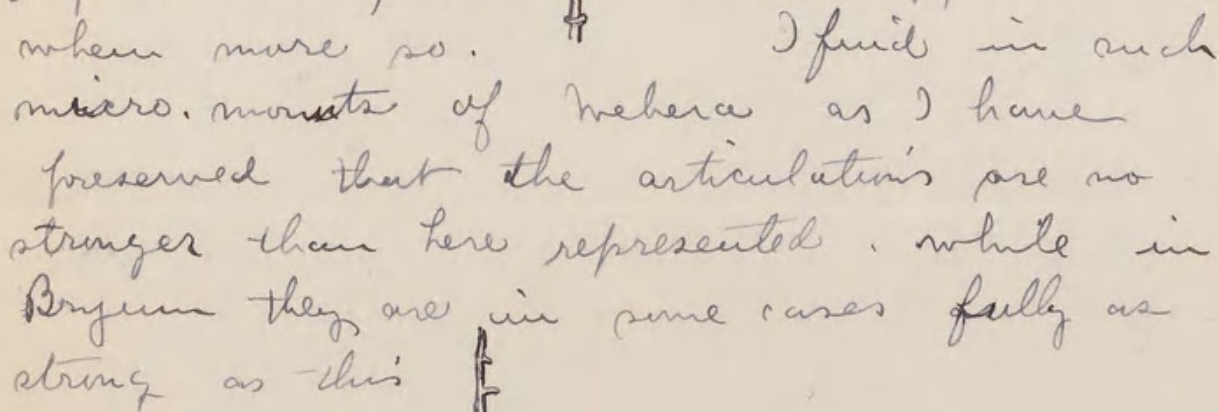 when more so. I find in such
micro. mounts of Webera as I have
preserved that the articulations are no
stronger than here represented. while in
Bryum they are in some cases fully as
strong as this